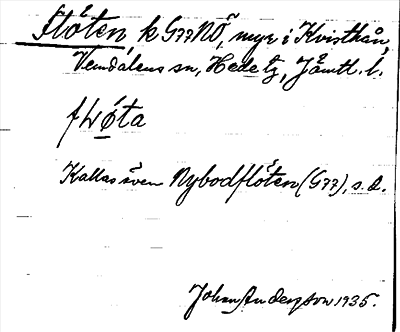 Flöten, k G77NÖ, myr i Kvisthån,
Vemdalens sn, Hede tg, Jämtl. l.
Kallas även Nybodflöten (G77), s. d.
Johan Anderson 1935.